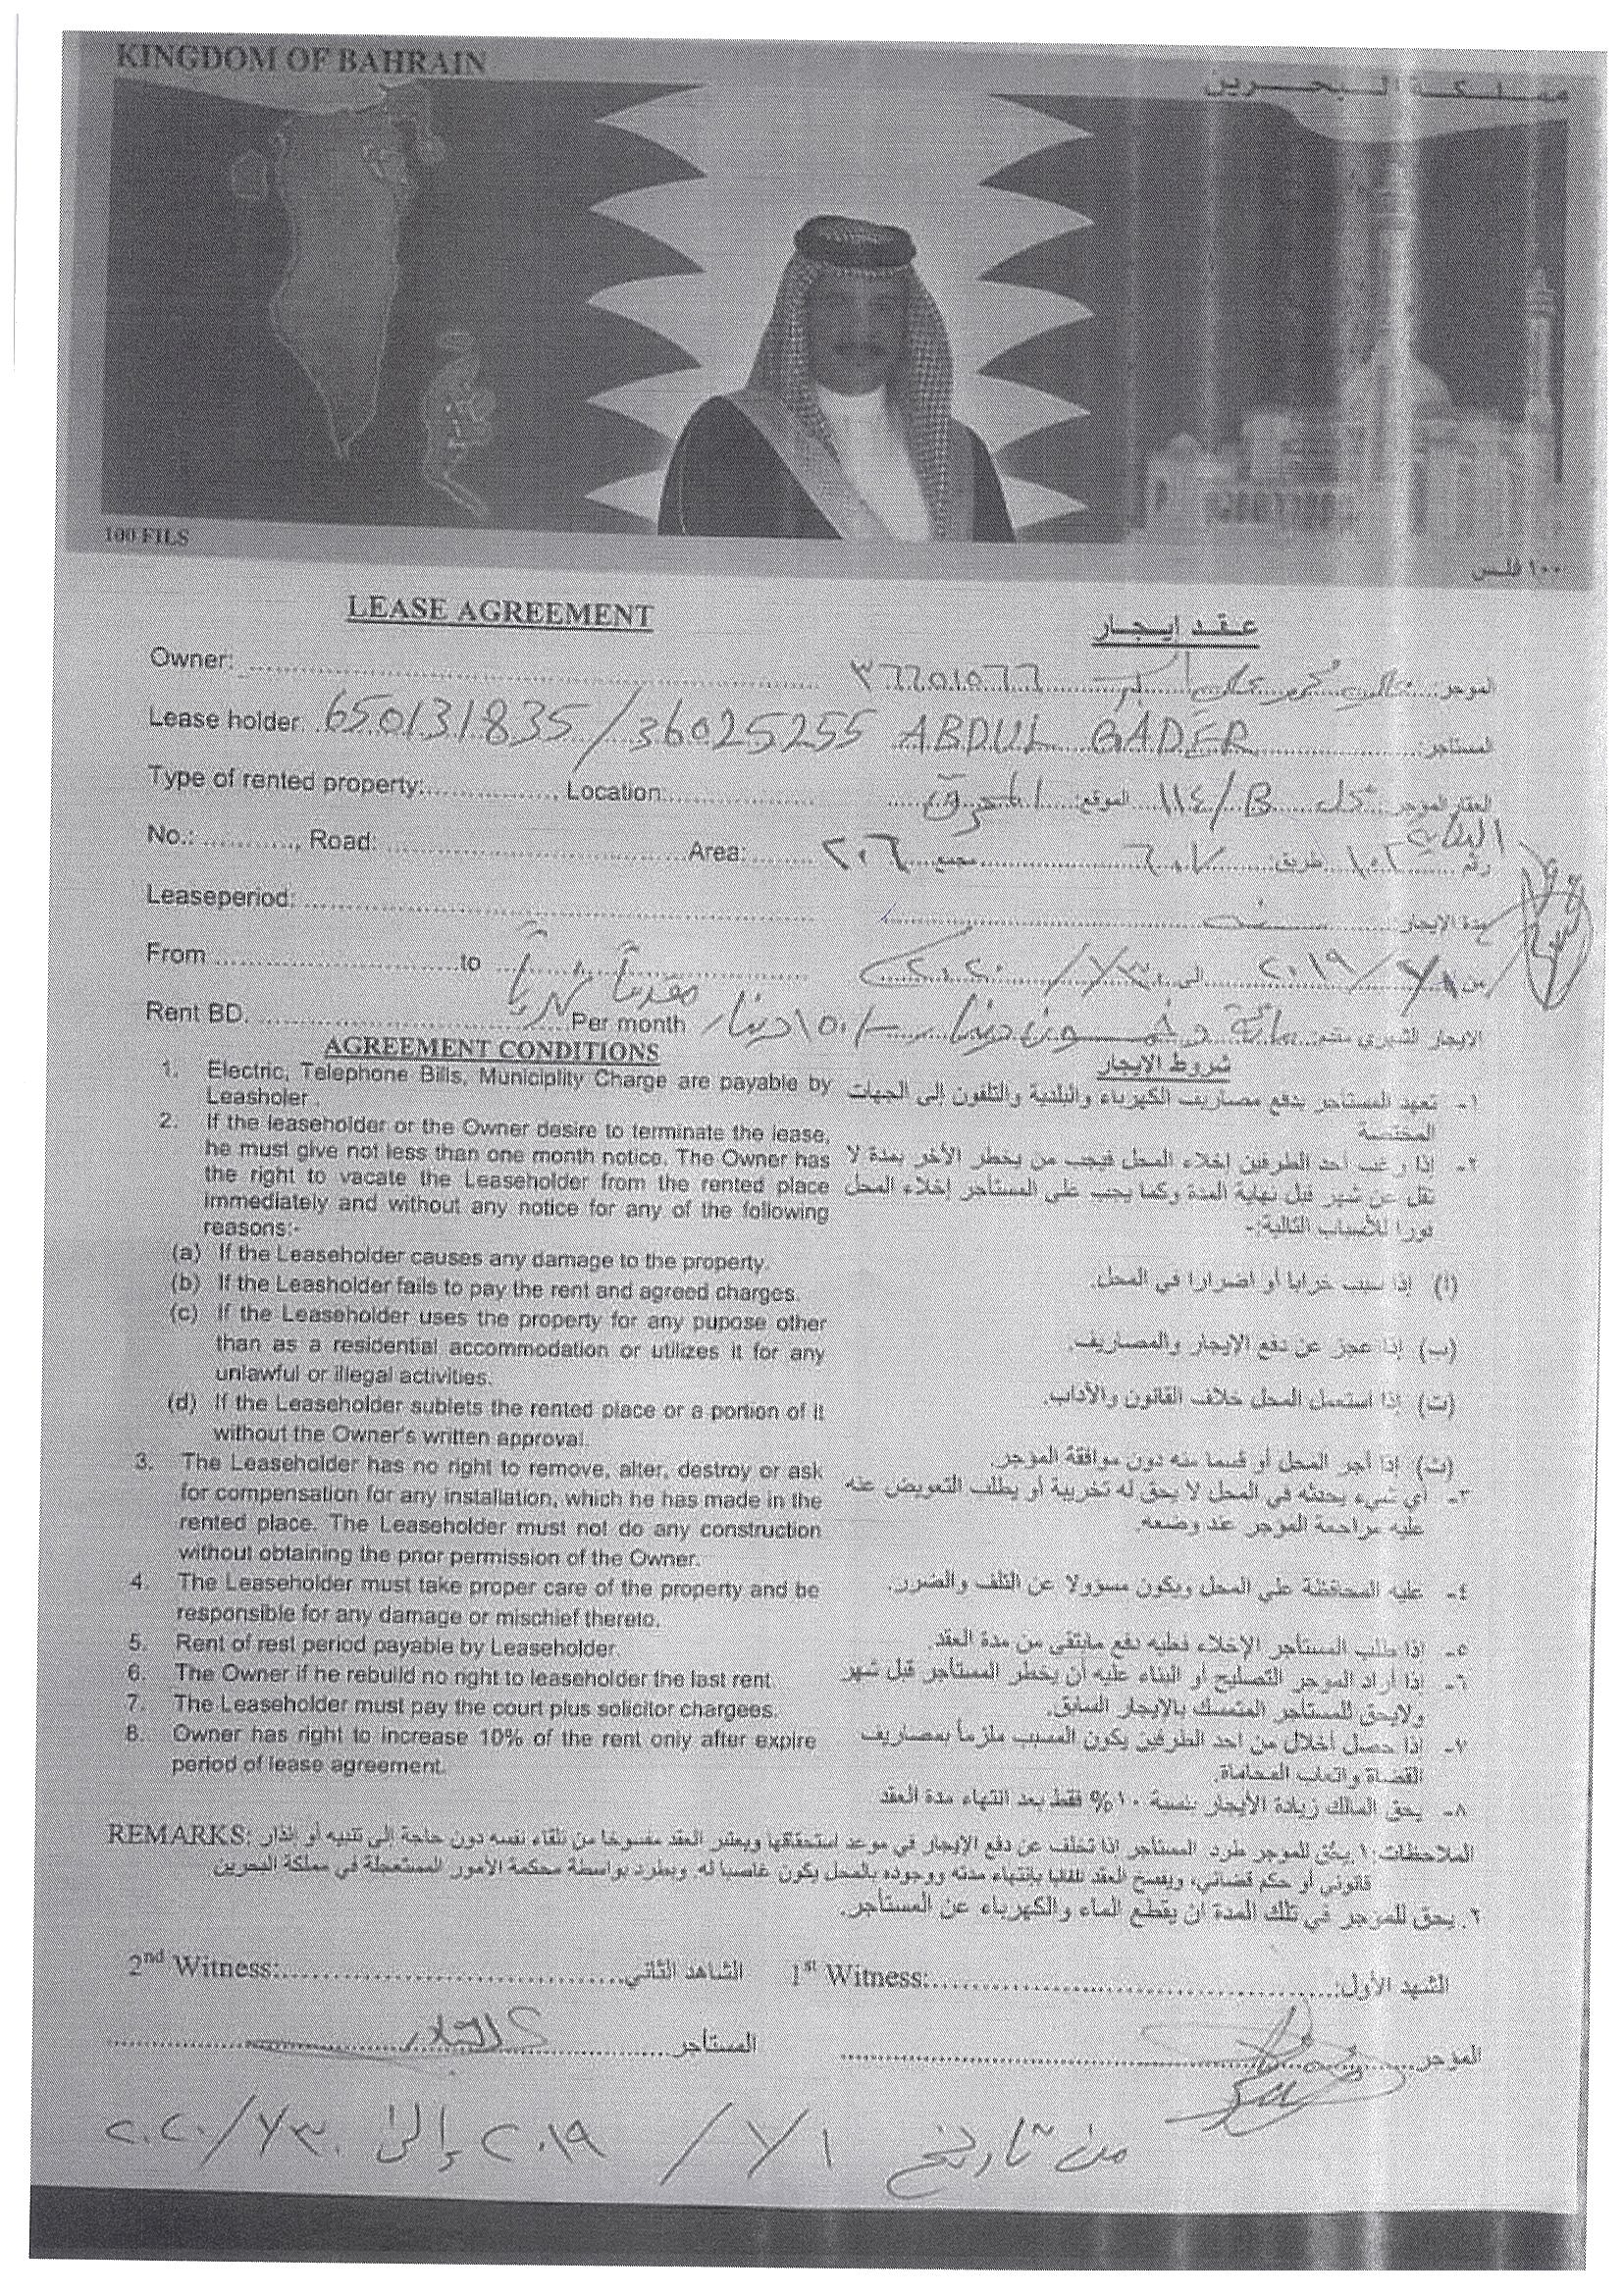 KINGDOM OF BAHRAIN
مملكة البحرين
100 FILS
١٠٠ فلس
LEASE AGREEMENT
عقد إيجار
Owner:
المؤجر: محمد علي ٣٦٦٥١٥٦٦
Lease holder: 650131835/36025255 ABDUL GADER المستأجر:
Type of rented property: Location:
العقار المؤجر B/١١٤ الموقع: المحرق
البناية
No.: Road: Area:
رقم ١٠٢ طريق: ٦٠٧ مجمع ٢٠٦
Leaseperiod:
مدة الايجار سنة
From to
من ٧/١/٢٠١٩ الى ٧/٣٠/٢٠٢٠
Rent BD. Per month
الايجار الشهري مائة وخمسون دينار -/١٥٠ دينار مقدماً شهرياً
AGREEMENT CONDITIONS
1. Electric, Telephone Bills, Municiplity Charge are payable by
Leasholer.
2. If the leaseholder or the Owner desire to terminate the lease,
he must give not less than one month notice. The Owner has
the right to vacate the Leaseholder from the rented place
immediately and without any notice for any of the following
reasons:-
(a) If the Leaseholder causes any damage to the property.
(b) If the Leasholder fails to pay the rent and agreed charges.
(c) If the Leaseholder uses the property for any pupose other
than as a residential accommodation or utilizes it for any
unlawful or illegal activities.
(d) If the Leaseholder sublets the rented place or a portion of it
without the Owner's written approval.
3. The Leaseholder has no right to remove, alter, destroy or ask
for compensation for any installation, which he has made in the
rented place. The Leaseholder must not do any construction
without obtaining the prior permission of the Owner.
4. The Leaseholder must take proper care of the property and be
responsible for any damage or mischief thereto.
5. Rent of rest period payable by Leaseholder.
6. The Owner if he rebuild no right to leaseholder the last rent.
7. The Leaseholder must pay the court plus solicitor chargees.
8. Owner has right to increase 10% of the rent only after expire
period of lease agreement.
شروط الايجار
١- تعهد المستأجر بدفع مصاريف الكهرباء والبلدية والتلفون إلى الجهات
المختصة
٢- اذا رغب أحد الطرفين إخلاء المحل فيجب من يخطر الأخر بمدة لا
تقل عن شهر قبل نهاية المدة وكما يجب على المستأجر إخلاء المحل
فورا للأسباب التالية:-
(أ) إذا سبب خرابا أو اضرارا في المحل.
(ب) إذا عجز عن دفع الايجار والمصاريف.
(ت) إذا استعمل المحل خلاف القانون والآداب.
(ث) إذا أجر المحل أو قسما منه دون موافقة المؤجر.
٣- أي شيء يحدثه في المحل لا يحق له تخريبة أو يطلب التعويض عنه
عليه مراجعة المؤجر عند وضعه.
٤- عليه المحافظة على المحل ويكون مسؤولا عن التلف والضرر.
٥- اذا طلب المستأجر الإخلاء فعليه دفع مابتقى من مدة العقد
٦- إذا أراد الموجر التصليح أو البناء عليه أن يخطر المستأجر قبل شهر
ولايحق للمستأجر المتمسك بالايجار السابق.
٧- اذا حصل أخلال من احد الطرفين يكون المسبب ملزماً بمصاريف
القضاة واتعاب المحاماة.
٨- يحق المالك زيادة الأيجار بنسبة ١٠% فقط بعد انتهاء مدة العقد
REMARKS: الملاحظات: ١ يحق للموجر طرد المستأجر اذا تخلف عن دفع الإيجار في موعد استحقاقها ويعتبر العقد مفسوخا من تلقاء نفسه دون حاجة الى تنبيه أو إنذار
قانوني أو حكم قضائي، ويفسخ العقد تلقائيا بإنتهاء مدته ووجوده بالمحل يكون غاصبا له. ويطرد بواسطة محكمة الأمور المستعجلة في مملكة البحرين
٢. يحق للمؤجر في تلك المدة ان يقطع الماء والكهرباء عن المستأجر.
2nd Witness: الشاهد الثاني 1st Witness: الشهد الأول:
المستأجر
المؤجر
من تاريخ ٧/١/٢٠١٩ إلى ٧/٣٠/٢٠٢٠